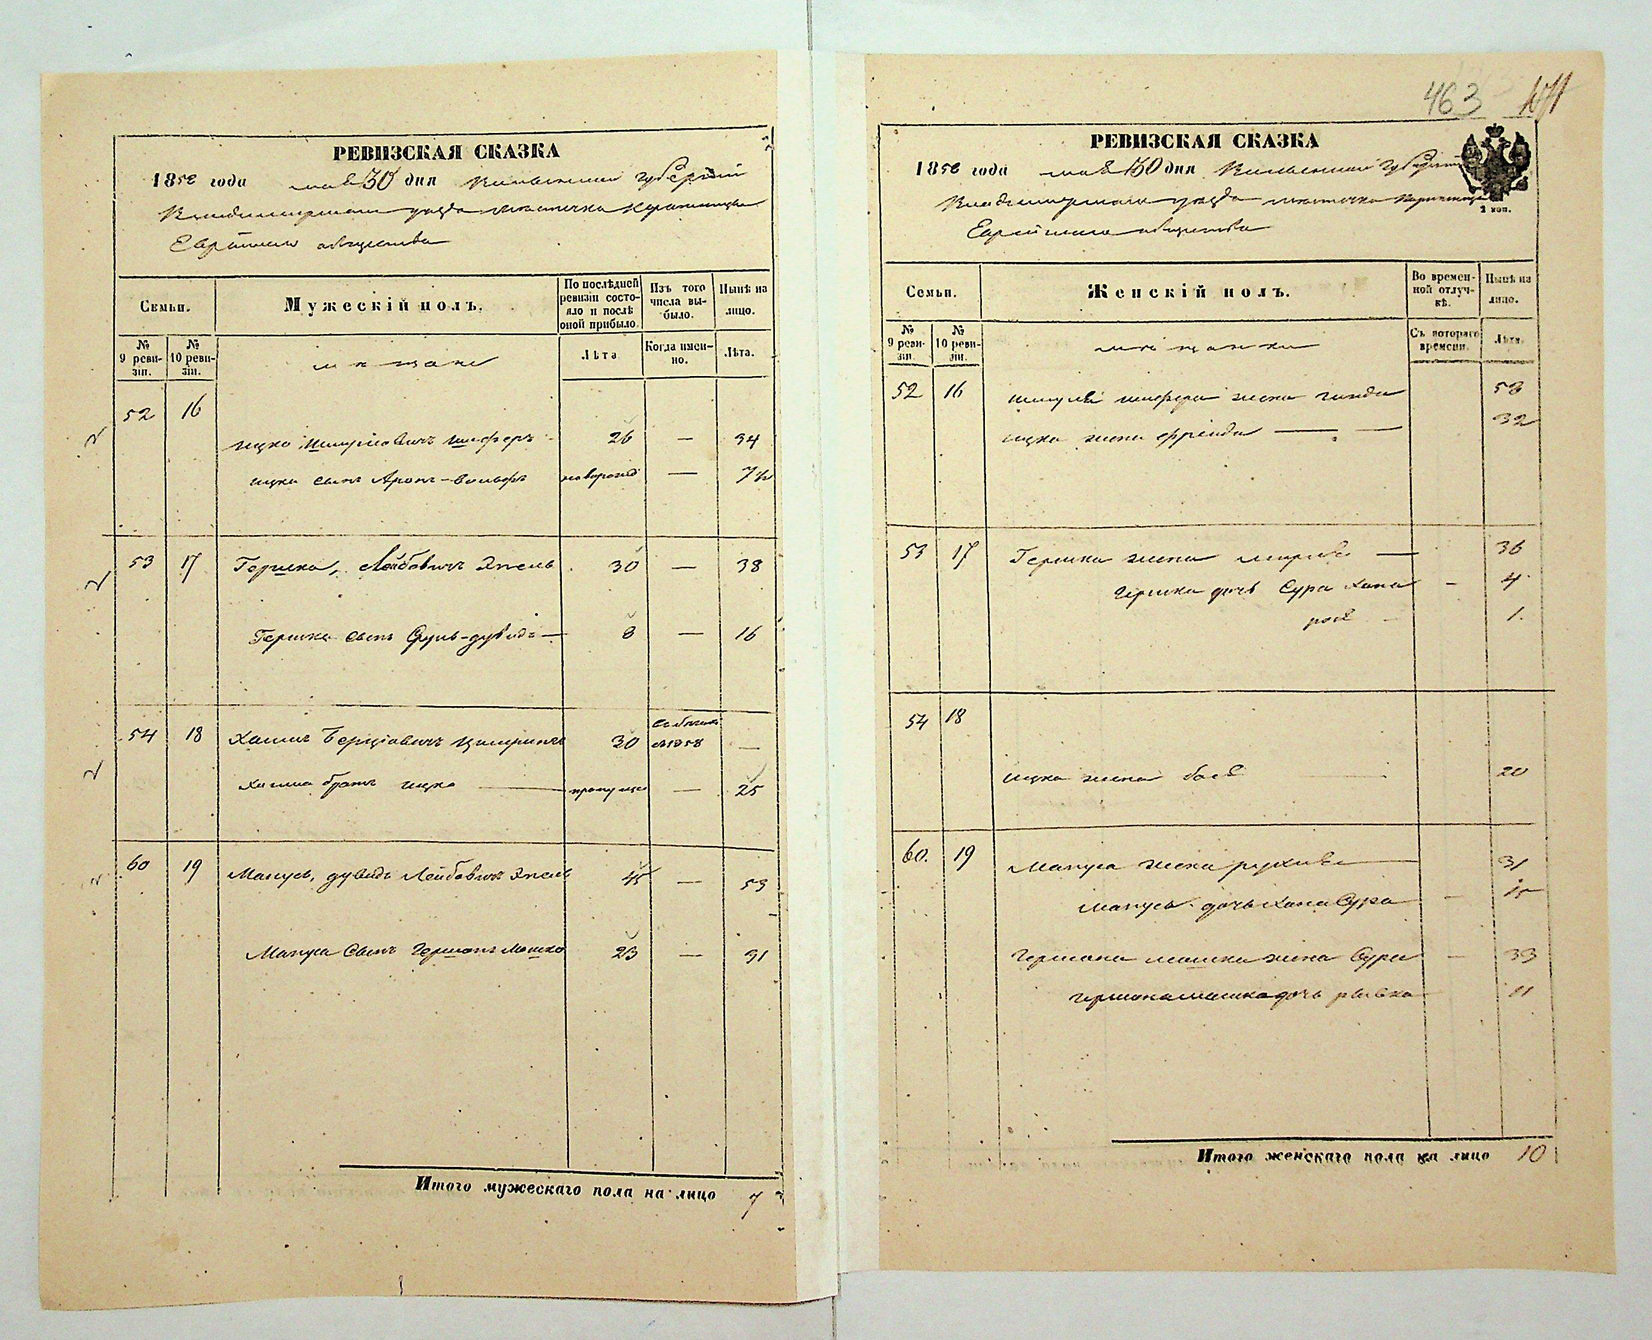 РЕВИЗСКАЯ СКАЗКА
1858 года мая 30 дня губерніи
уѣзда мѣстечка
Еврейскаго общества
Семьи.
Мужескій полъ.
По послѣдней ревизіи состояло и послѣ оной прибыло.
Изъ того числа выбыло.
Нынѣ на лицо.
№ 9 ревизіи.
№ 10 ревизіи.
мѣщане
Лѣта
Когда именно.
Лѣта.
52 16
Ицко Шмуйловичъ Шиферъ 26 — 34
Ицки сынъ Аронъ-Вольфъ новорожд — 7 ½
53 17 Гершка, Лейбовичъ Эпель 30 — 38
Гершка сынъ Сруль-дувидъ — 8 — 16
54 18 Хаимъ 30 1858 —
Хаима братъ Ицко — — 25
60 19 Манусъ, дувидъ Лейбовичъ Эпель 45 — 53
Мануса сынъ Гершонъ Мошко 23 — 31
Итого мужескаго пола на лицо 7
463
РЕВИЗСКАЯ СКАЗКА
1858 года мая 30 дня губерніи
уѣзда мѣстечка
Еврейскаго общества
2 коп.
Семьи.
Женскій полъ.
Во временной отлучкѣ.
Нынѣ на лицо.
№ 9 ревизіи.
№ 10 ревизіи.
мѣщанки
Съ котораго времени.
Лѣта.
52 16 Шмуйлы Шифера жена 53
Ицка жена Фрейда — — 32
53 17 Гершка жена — 36
Гершки дочь Сура Хана — 4
1.
54 18
Ицка жена бася 20
60. 19 Мануса жена — 31
Мануса дочь Хана Сура — 15
Гершона Мошка жена Сура — 33
Гершона Мошка дочь рывка 11
Итого женскаго пола на лицо 10